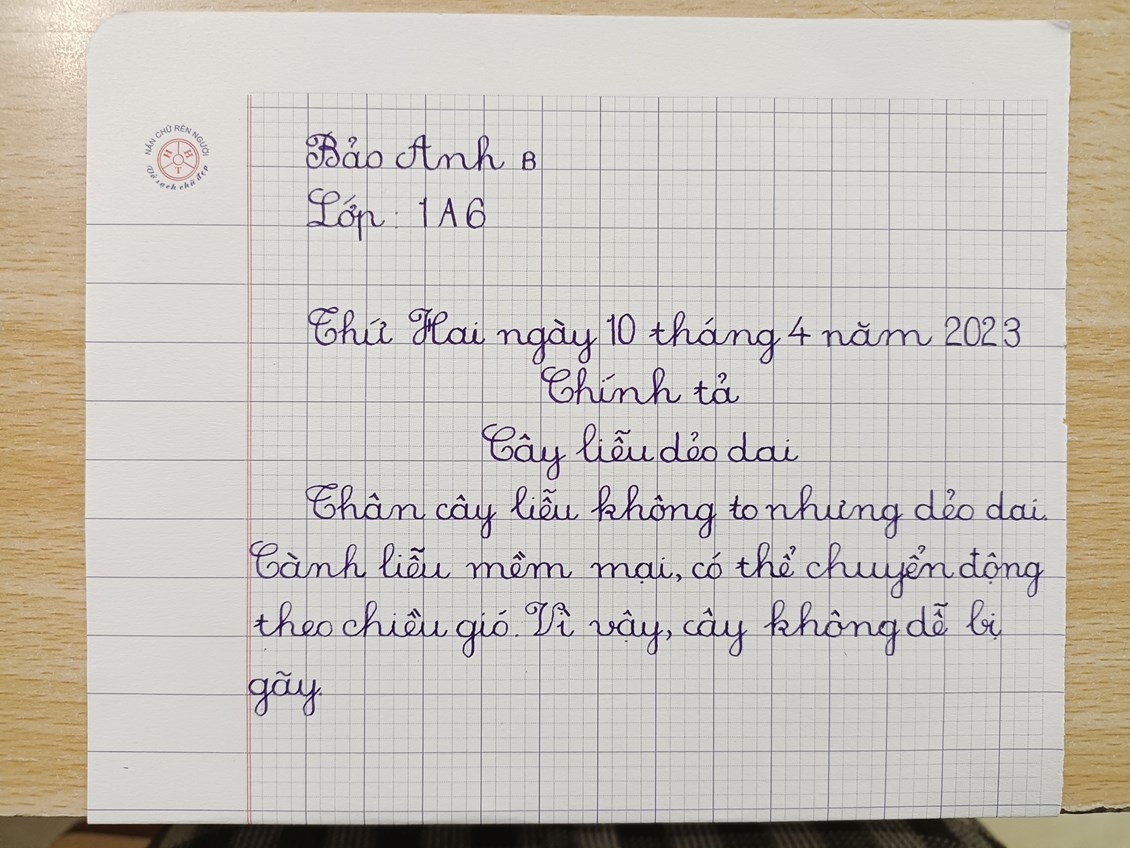 NẮN CHỮ RÈN NGƯỜI
H H T
Vở sạch chữ đẹp
Bảo Anh B
Lớp: 1A6
Thứ Hai ngày 10 tháng 4 năm 2023
Chính tả
Cây liễu dẻo dai
Thân cây liễu không to nhưng dẻo dai.
Cành liễu mềm mại, có thể chuyển động
theo chiều gió. Vì vậy, cây không dễ bị
gãy.